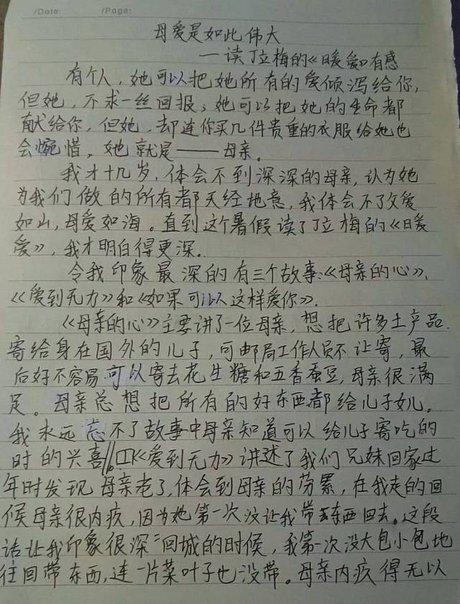 /Date: /Page:
母爱是如此伟大
——读丁立梅的《暖爱》有感
有个人,她可以把她所有的爱倾泻给你,
但她,不求一丝回报,她可以把她的生命都
献给你,但她,却连你买几件贵重的衣服给她也
会惋惜。她就是——母亲。
我才十几岁,体会不到深深的母亲,认为她
为我们做的所有都天经地丧,我体会不了父爱
如山,母爱如海。直到这个暑假读了丁立梅的《暖
爱》,我才明白得更深。
令我印象最深的有三个故事:《母亲的心》、
《爱到无力》和《如果可以这样爱你》.
《母亲的心》主要讲了一位母亲,想把许多土产品
寄给身在国外的儿子,可邮局工作人员不让寄,最
后好不容易可以寄去花生糖和五香蚕豆,母亲很满
足。母亲总想把所有的好东西都给儿子女儿。
我永远忘不了故事中母亲知道可以给儿子寄吃的
时的兴喜《爱到无力》讲述了我们兄妹回家过
年时发现母亲老了,体会到母亲的劳累,在我走的回
候母亲很内疚,因为她第一次没让我带东西回去。这段
话让我印象很深"回城的时候,我第一次没大包小包地
往回带东西,连一片菜叶子也没带。母亲内疚得无以